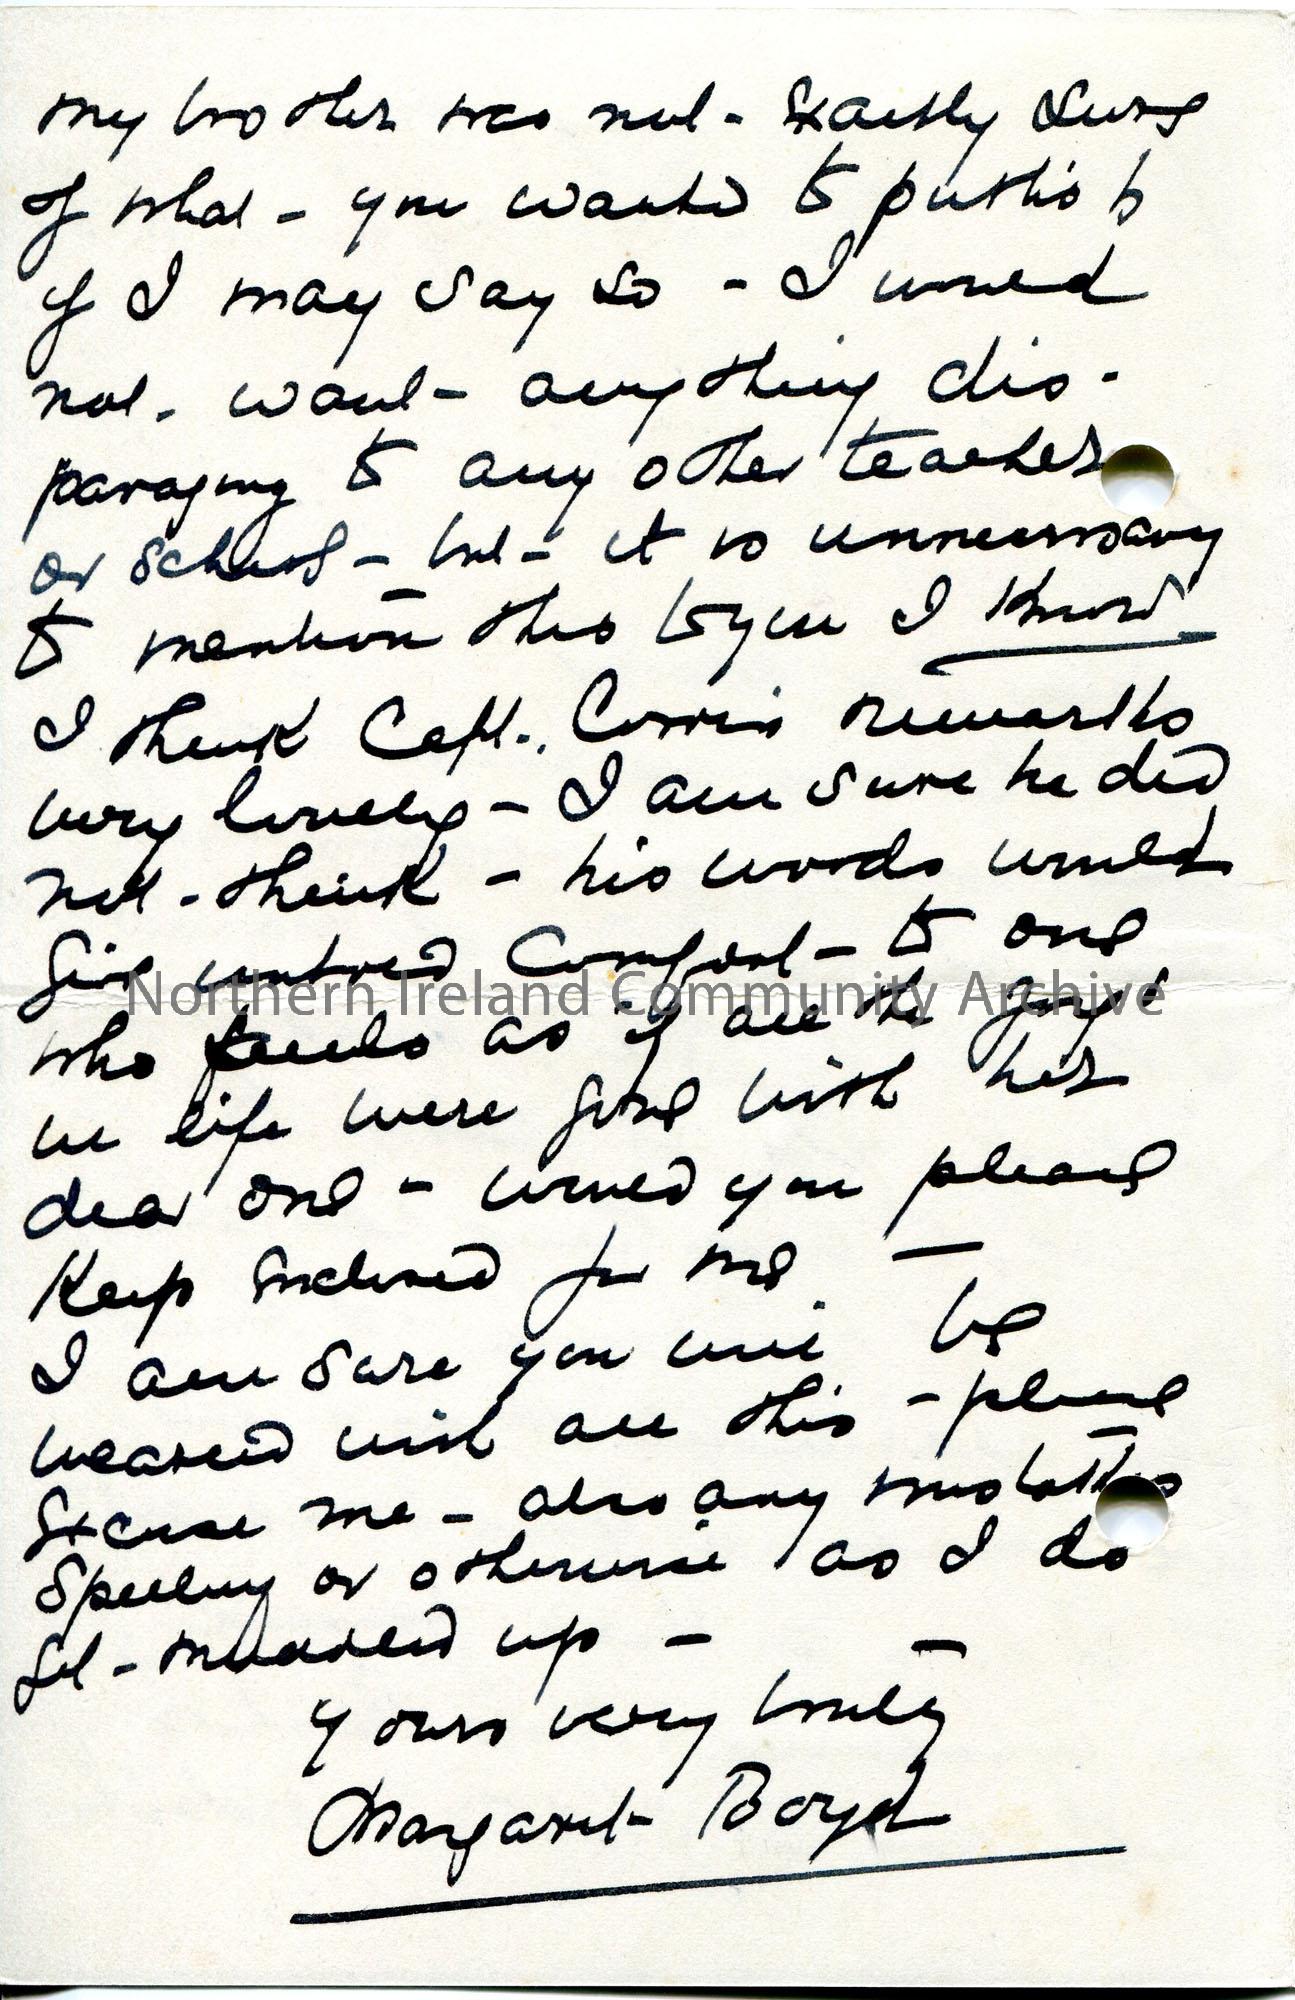 my brother was not - Exactly Sure
of what - you wanted to publish
if I may say so - I would
not - want - anything dis-
paraging to any other teacher
or School - but - it is unnecessary
to mention this to you I know
I think Capt. remarks
very lovely - I am sure he did
not - think - his words would
give untold Comfort - to one
who feels as if all the joy
in life were gone with her
dear one - would you please
Keep Enclosed for me -
I am sure you will be
wearied with all this - please
Excuse me - also any mistakes
Spelling or otherwise as I do
get - muddled up -
Yours very truly
Margaret Boyd
Northern Ireland Community Archive